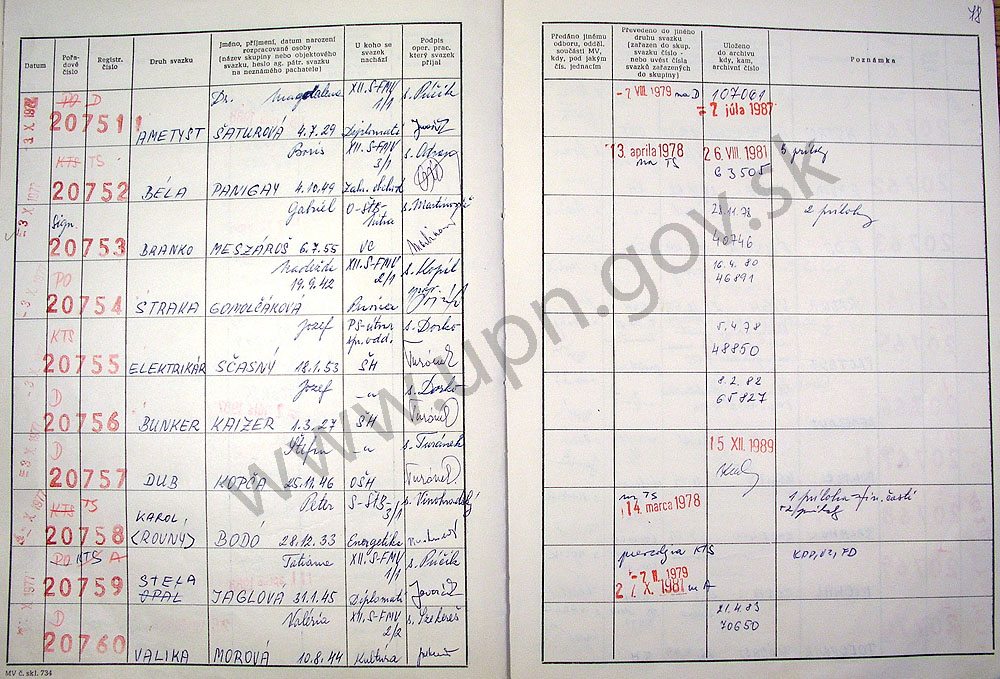 18
Datum
Pořadové číslo
Registr. číslo
Druh svazku
Jméno, příjmení, datum narození rozpracované osoby (název skupiny nebo objektového svazku, heslo ag. pátr. svazku na neznámého pachatele)
U koho se svazek nachází
Podpis oper. prac. který svazek přijal
Předáno jinému odboru, odděl. součásti MV, kdy, pod jakým čís. jednacím
Převedeno do jiného druhu svazku (zařazen do skup. svazku číslo - nebo uvést čísla svazků zařazených do skupiny)
Uloženo do archívu kdy, kam, archivní číslo
Poznámka
PO D Dr. Magdalena XII.S-FMV 1/1 s. Púčik -7 VIII 1979 na D 107061
20751 AMETYST ŠATUROVÁ 4.7.29 Diplomati = 2 júla 1987
KTS TS Boris XII.S-FMV 3/1 13. apríla 1978 na TS 26. VIII. 1981 3 prílohy
20752 BÉLA PANIGAY 4.10.49 63505
Sign. Gabriel O-ŠtB- Nitra 28.11.78 2 prílohy
20753 BRANKO MESZÁROŠ 6.7.55 VC 40746
PO Nadežda XII.S-FMV 2/1 s. Klopál 16.4.80
20754 STRAKA GOMOLČÁKOVÁ 19.9.42 46891
KTS Jozef s. Dorko 5.4.78
20755 ELEKTRIKÁR SČASNÝ 18.1.53 ŠH 48850
D Jozef -"- s. Dorko 8.2.82
20756 BUNKER KAIZER 1.3.27 ŠH 65827
D Štefan -"- s. Turánek 15 XII. 1989
20757 DUB KOPČA 25.11.46 OŠH
KTS TS Peter S-ŠtB- 3/1 s. Vinohradský na TS 14. marca 1978 1 príloha
20758 KAROL, (ROVNÝ) BODÓ 28.12.33 Energetika
PO KTS A Tatiana XII.S-FMV 1/1 s. Púčik KTS -7 II. 1979
20759 STELA OPÁL JAGLOVÁ 31.1.45 Diplomati 27 X. 1981 na A
D Valéria XII.S-FMV 2/2 s. Szekereš 21.4.83
20760 VALIKA MOROVÁ 10.8.44 Kultúra 70650
MV č. skl. 734
www.upn.gov.sk